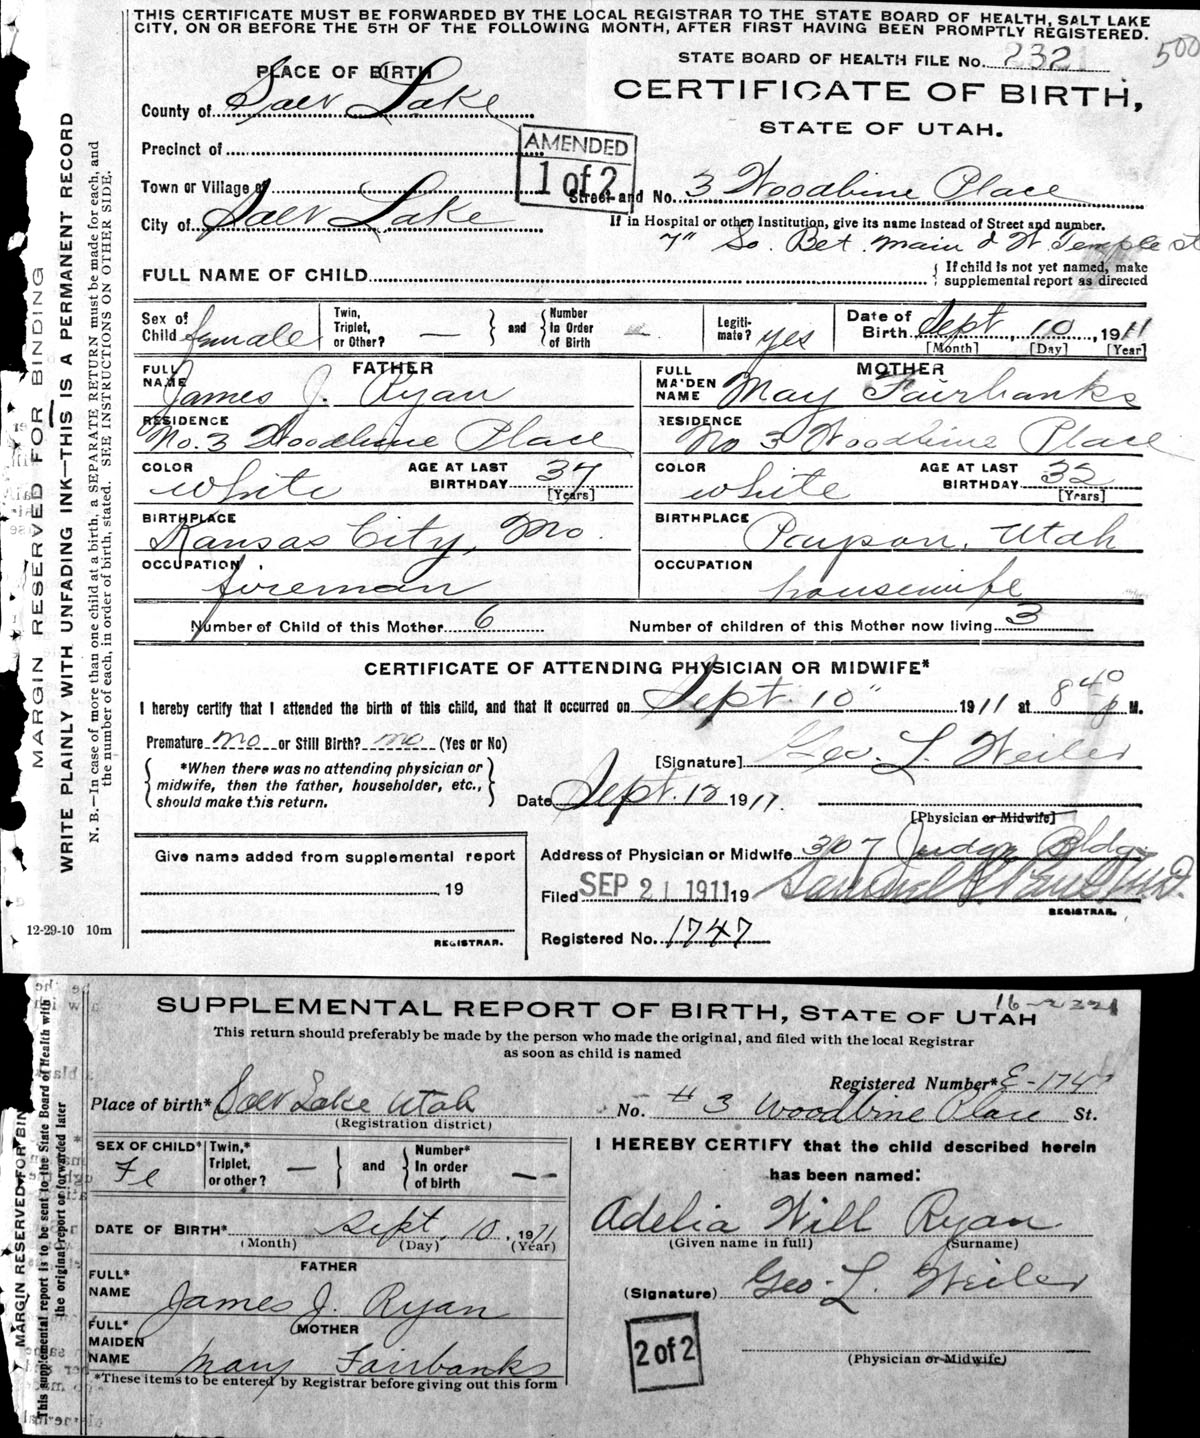 THIS CERTIFICATE MUST BE FORWARDED BY THE LOCAL REGISTRAR TO THE STATE BOARD OF HEALTH, SALT LAKE
CITY, ON OR BEFORE THE 5TH OF THE FOLLOWING MONTH, AFTER FIRST HAVING BEEN PROMPTLY REGISTERED.
STATE BOARD OF HEALTH FILE No. 2321
500
CERTIFICATE OF BIRTH,
STATE OF UTAH.
PLACE OF BIRTH
County of Salt Lake
Precinct of
Town or Village of
City of Salt Lake
AMENDED
1 of 2
Street and No. 3 Woodbine Place
If in Hospital or other Institution, give its name instead of Street and number.
7" So. Bet. Main & W. Temple st
FULL NAME OF CHILD
If child is not yet named, make
supplemental report as directed
Sex of Child female
Twin, Triplet, or Other? —
and
Number In Order of Birth —
Legitimate? yes
Date of Birth Sept. 10, 1911
[Month] [Day] [Year]
FATHER
FULL NAME James J. Ryan
RESIDENCE No. 3 Woodbine Place
COLOR white
AGE AT LAST BIRTHDAY 37 [Years]
BIRTHPLACE Kansas City, Mo.
OCCUPATION foreman
MOTHER
FULL MAIDEN NAME May Fairbanks
RESIDENCE No 3 Woodbine Place
COLOR white
AGE AT LAST BIRTHDAY 32 [Years]
BIRTHPLACE Payson, Utah
OCCUPATION housewife
Number of Child of this Mother 6
Number of children of this Mother now living 3
CERTIFICATE OF ATTENDING PHYSICIAN OR MIDWIFE*
I hereby certify that I attended the birth of this child, and that it occurred on Sept. 10" 1911 at 8 40 P M.
Premature no or Still Birth? no (Yes or No)
*When there was no attending physician or
midwife, then the father, householder, etc.,
should make this return.
[Signature] Geo. L. Weiler
Date Sept. 12 1911.
[Physician or Midwife]
Give name added from supplemental report
19
REGISTRAR.
Address of Physician or Midwife 307 Judge Bldg.
Filed SEP 21 1911 19
REGISTRAR.
Registered No. 1747
12-29-10 10m
MARGIN RESERVED FOR BINDING
WRITE PLAINLY WITH UNFADING INK—THIS IS A PERMANENT RECORD
N. B.—In case of more than one child at a birth, a SEPARATE RETURN must be made for each, and
the number of each, in order of birth, stated. SEE INSTRUCTIONS ON OTHER SIDE.
16-2321
SUPPLEMENTAL REPORT OF BIRTH, STATE OF UTAH
This return should preferably be made by the person who made the original, and filed with the local Registrar
as soon as child is named
Registered Number* E-1747
Place of birth* Salt Lake Utah
(Registration district)
No. # 3 Woodbine Place St.
SEX OF CHILD* Fe
Twin,* Triplet, or other? —
and
Number* In order of birth —
DATE OF BIRTH* Sept. 10, 1911
(Month) (Day) (Year)
FATHER
FULL* NAME James J. Ryan
MOTHER
FULL* MAIDEN NAME Mary Fairbanks
*These items to be entered by Registrar before giving out this form
I HEREBY CERTIFY that the child described herein
has been named:
Adelia Will Ryan
(Given name in full) (Surname)
(Signature) Geo. L. Weiler
2 of 2
(Physician or Midwife)
MARGIN RESERVED FOR BIN
This supplemental report is to be sent to the State Board of Health with
the original report or forwarded later